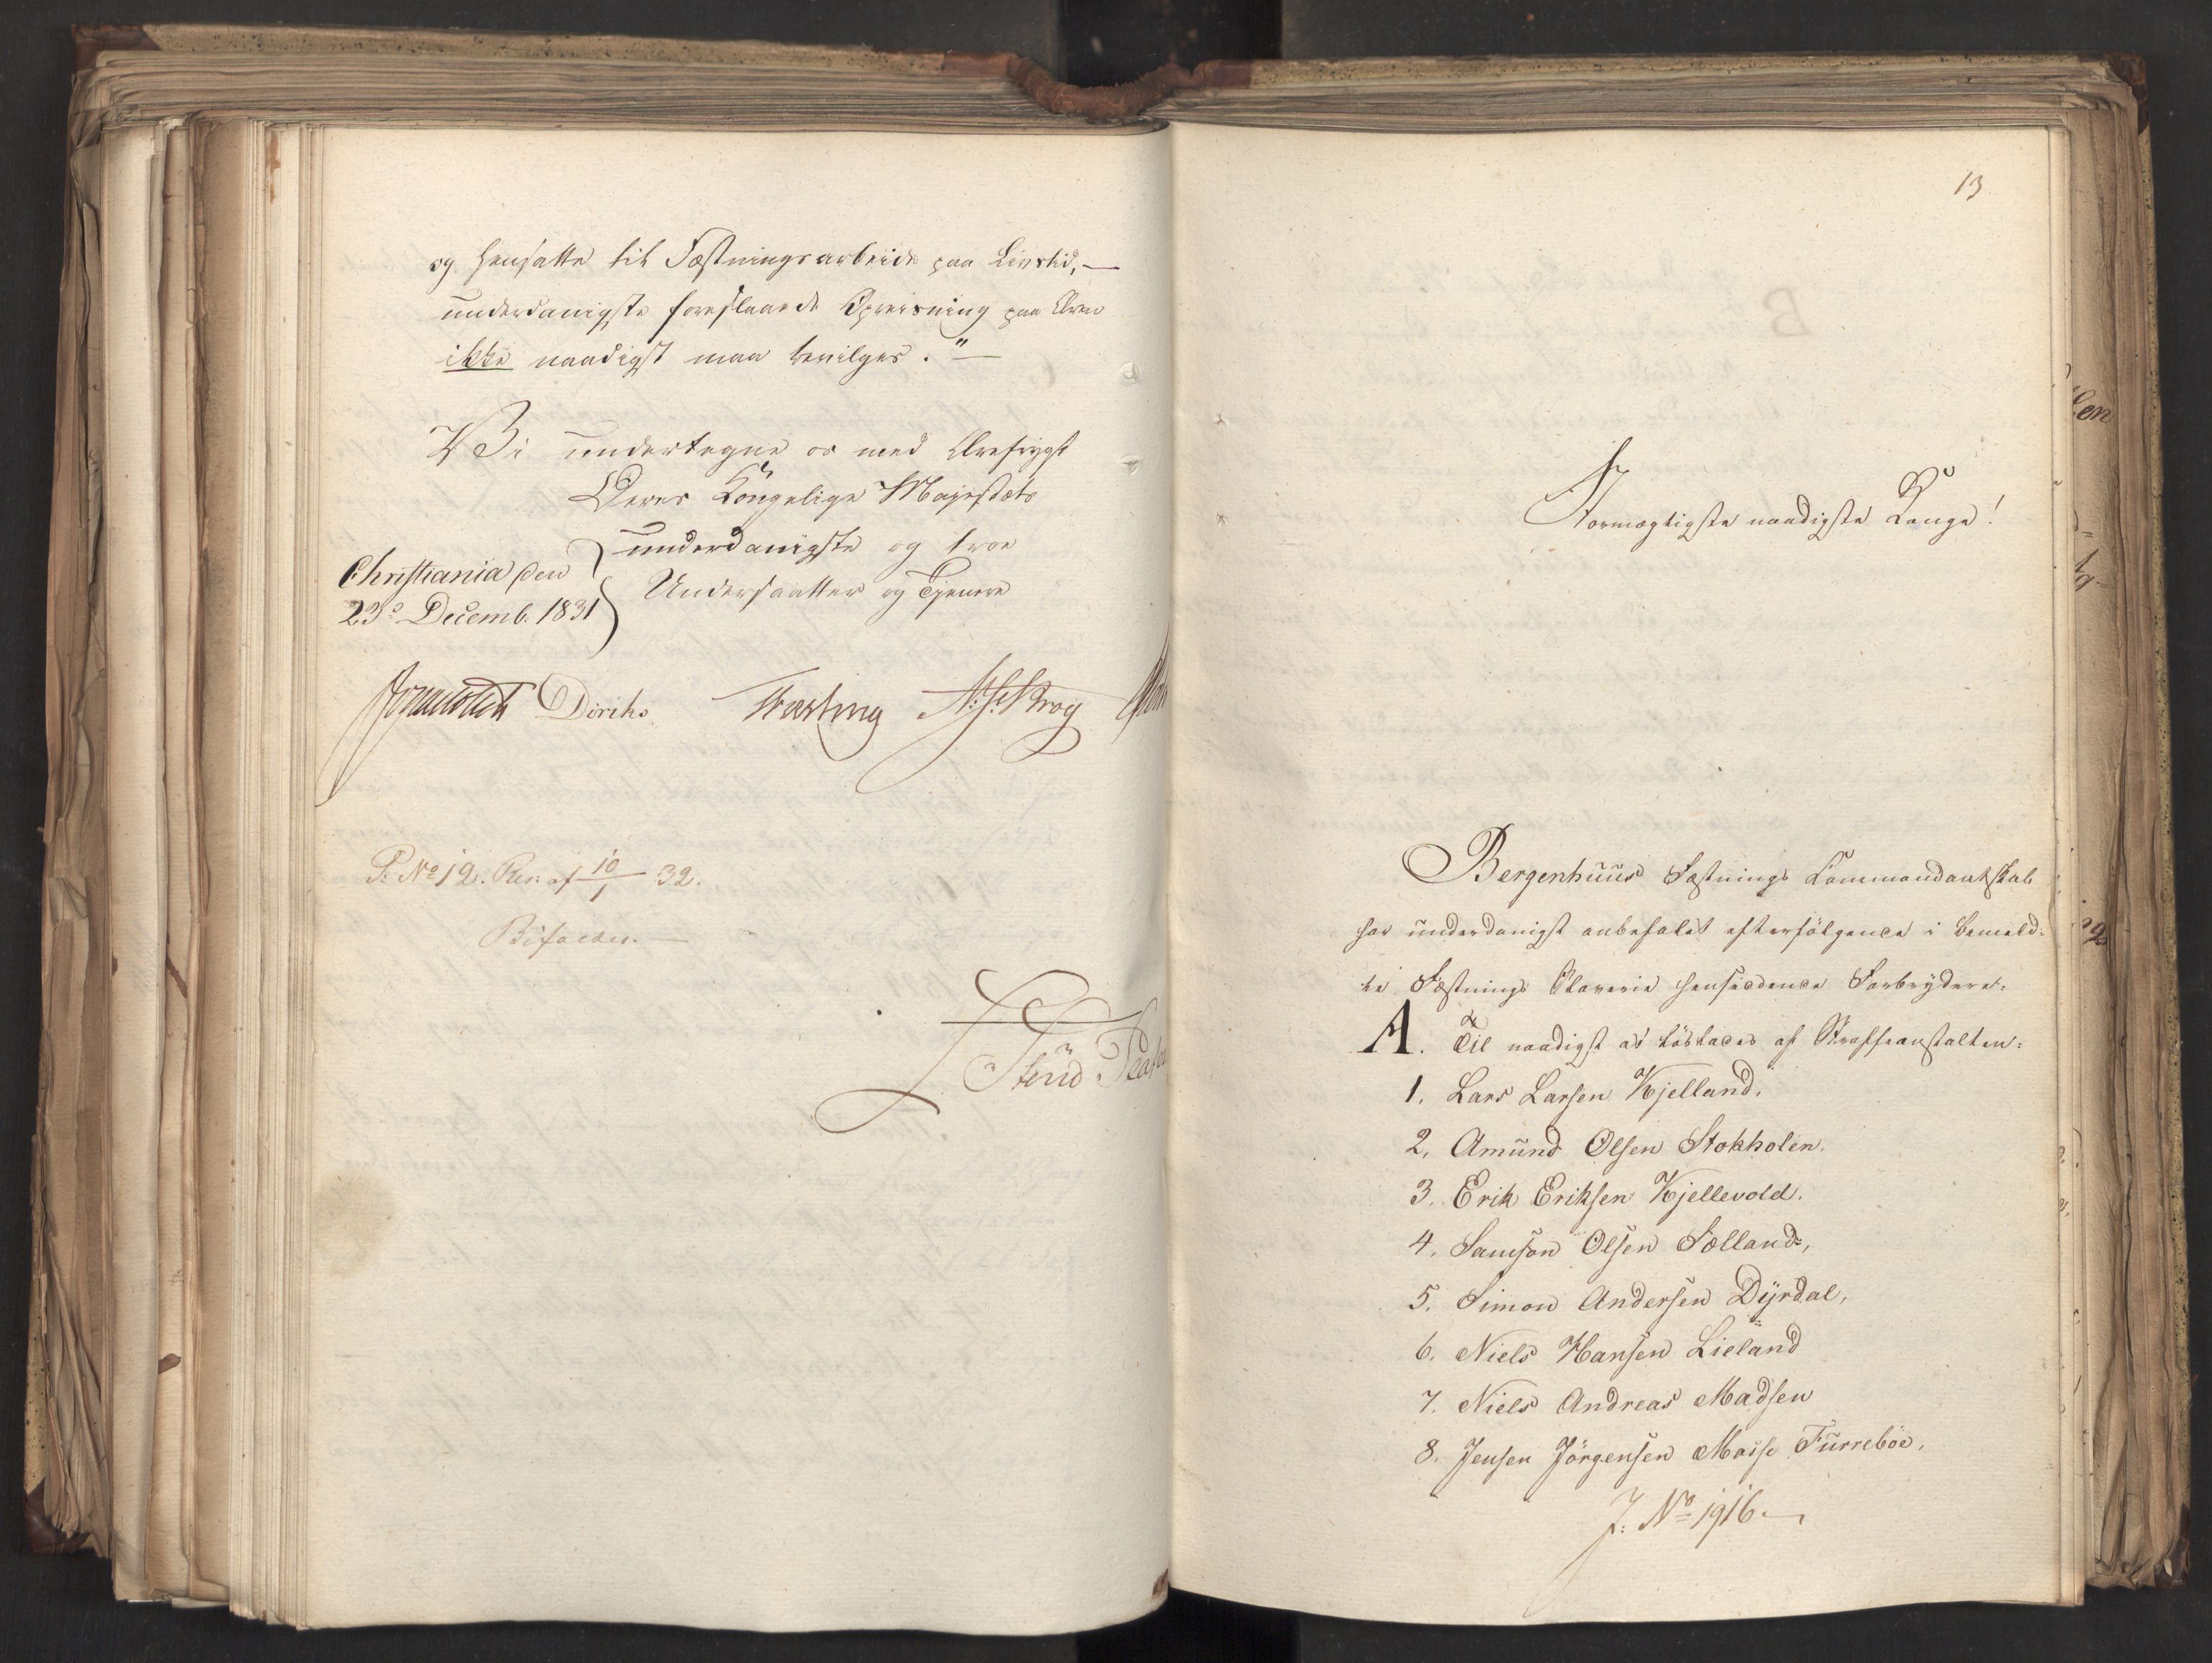 og hensatte til Fæstningsarbeide paa Livstid, —
underdanigste foreslaaede Opreisning paa Æren
ikke naadigst maa bevilges." —
Vi undertegne os med Ærefrygt
Deres Kongelige Majestæts
underdanigste og troe
Undersaatter og Tjenere
Christiania den
23de Decemb. 1831
Diriks Fasting
P. No 12. Res. af 10/1 32.
Bifaldes. —
13
Stormægtigste naadigste Konge!
Bergenhuus Fæstnings Kommandantskab
har underdanigst anbefalet efterfølgende i bemeld-
te Fæstnings Slaverie hensiddende Forbrydere:
A. Til naadigst at løslades af Straffeanstalten:
1. Lars Larsen Kjelland,
2. Amund Olsen Stokholen,
3. Erik Eriksen Kjellevold.
4. Samson Olsen Sælland,
5. Simon Andersen Dyrdal,
6. Niels Hansen Lieland
7. Niels Andreas Madsen
8. Jensen Jörgensen Furreböe,
J. No 1916. —